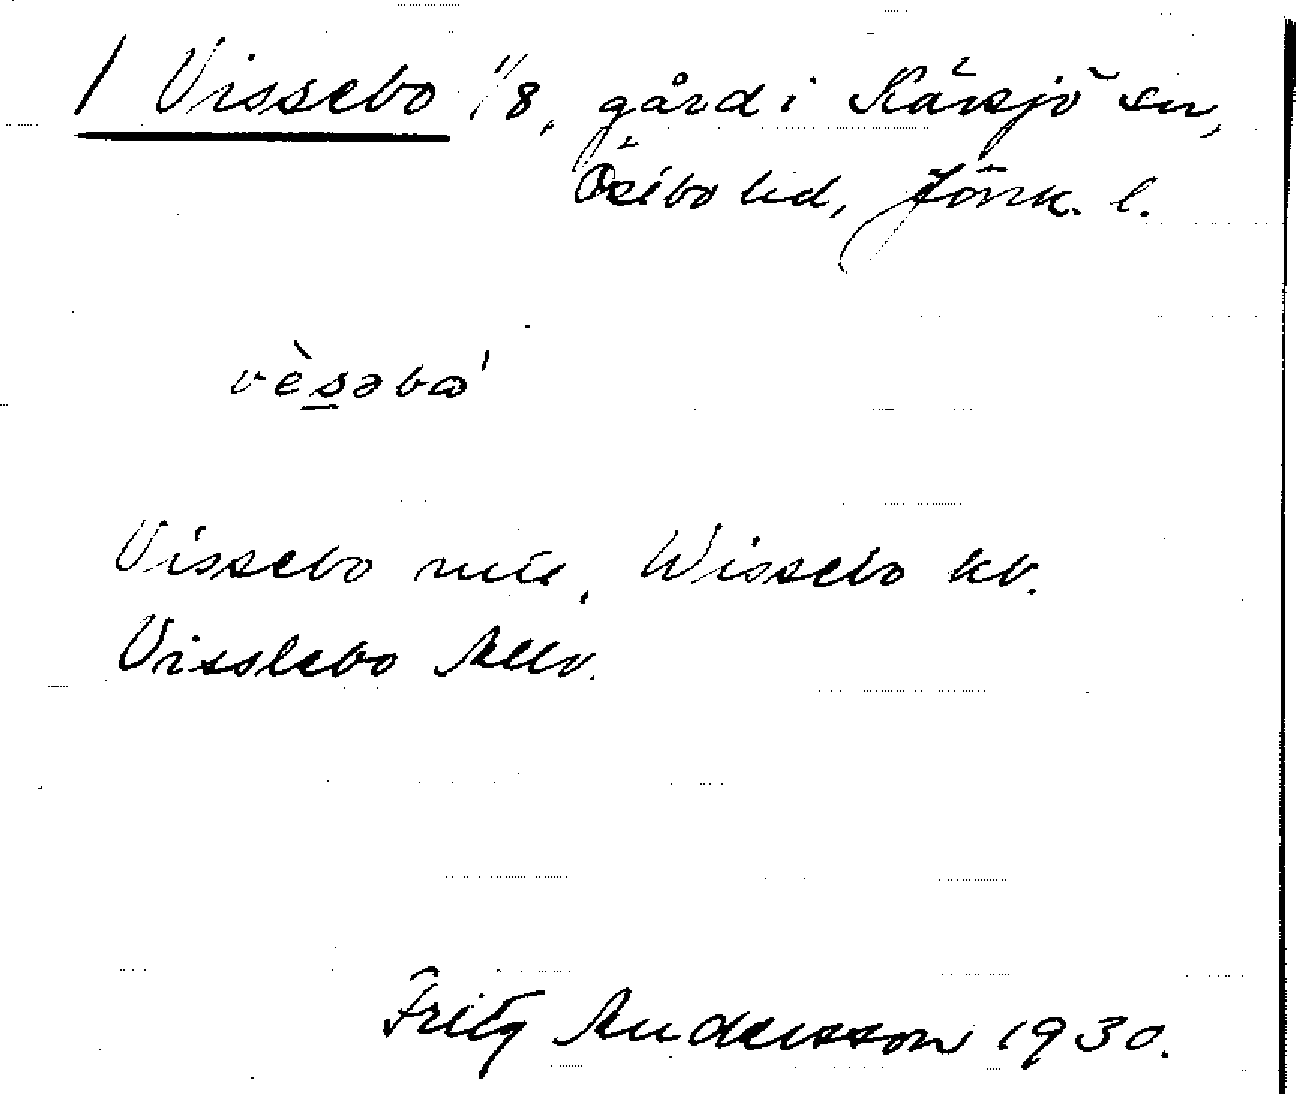 / Vissebo 1/8, gård i Kärsjö sn,
Östbo hd, Jönk. l.
vès̲əbω'
Vissebo Wissebo kb.
Visslebo
Fritz Andersson 1930.